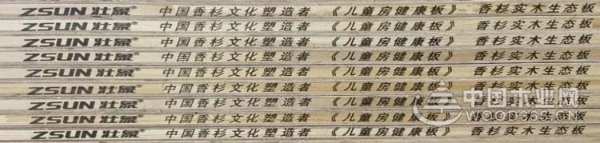 ZSUN 壮象® 中国香杉文化塑造者 《儿童房健康板》 香杉实木生态板
ZSUN 壮象® 中国香杉文化塑造者 《儿童房健康板》 香杉实木生态板
ZSUN 壮象® 中国香杉文化塑造者 《儿童房健康板》 香杉实木生态板
ZSUN 壮象® 中国香杉文化塑造者 《儿童房健康板》 香杉实木生态板
ZSUN 壮象® 中国香杉文化塑造者 《儿童房健康板》 香杉实木生态板
ZSUN 壮象® 中国香杉文化塑造者 《儿童房健康板》 香杉实木生态板
ZSUN 壮象® 中国香杉文化塑造者 《儿童房健康板》 香杉实木生态板
ZSUN 壮象® 中国香杉文化塑造者 《儿童房健康板》 香杉实木生态板
ZSUN 壮象® 中国香杉文化塑造者 《儿童房健康板》 香杉实木生态板
中国木业网
www.wood365.cn